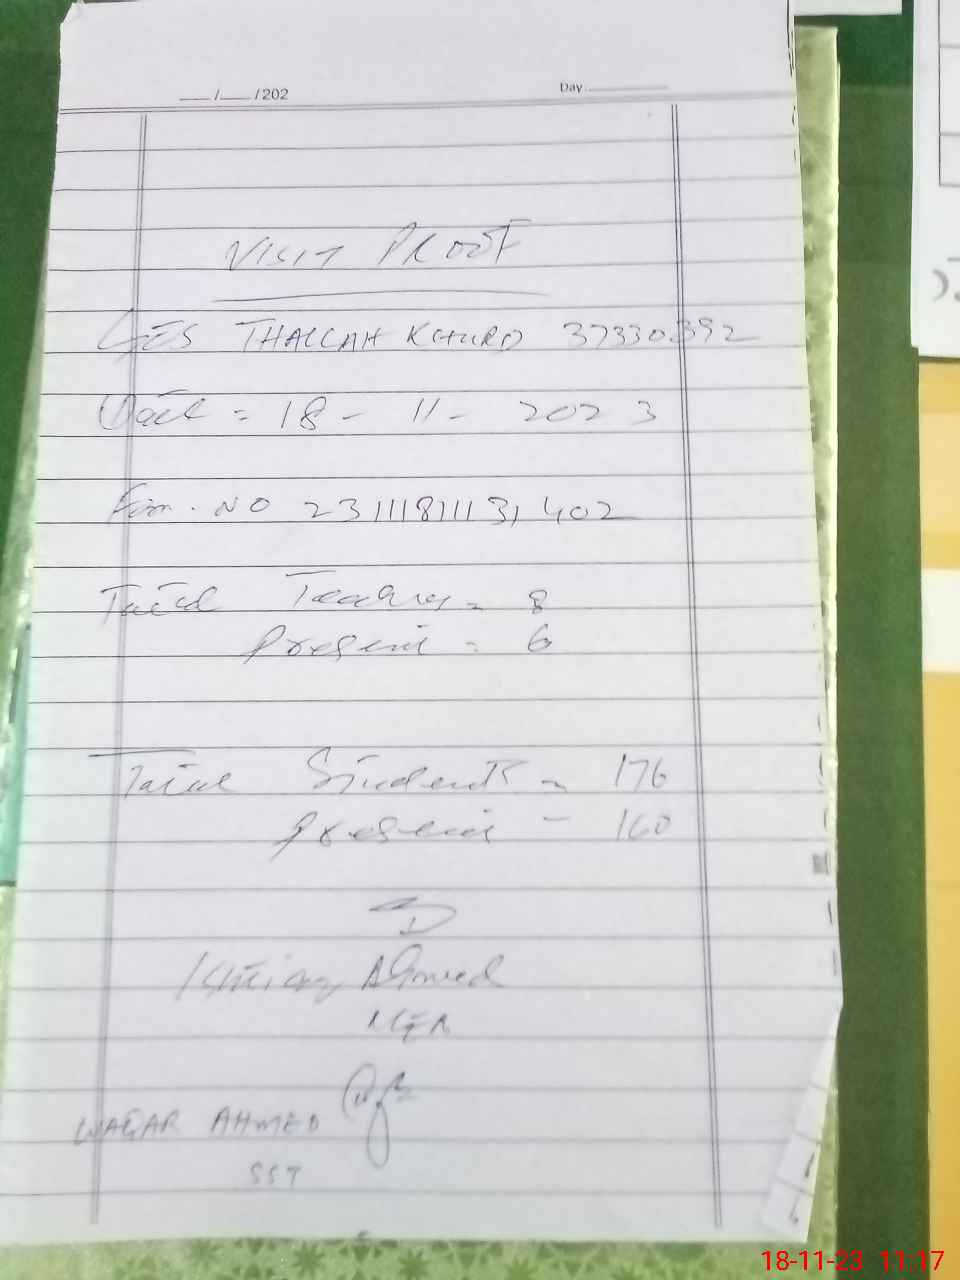 ___/___/202 Day:________
VISIT PROOF
GES THALLAH KHURD 37330392
Date = 18 - 11 - 2023
Form. NO 23111811131402
Total Teachers = 8
Present = 6
Total Students = 176
Present = 160
Ahmed
MEA
WAQAR AHMED
SST
18-11-23 11:17